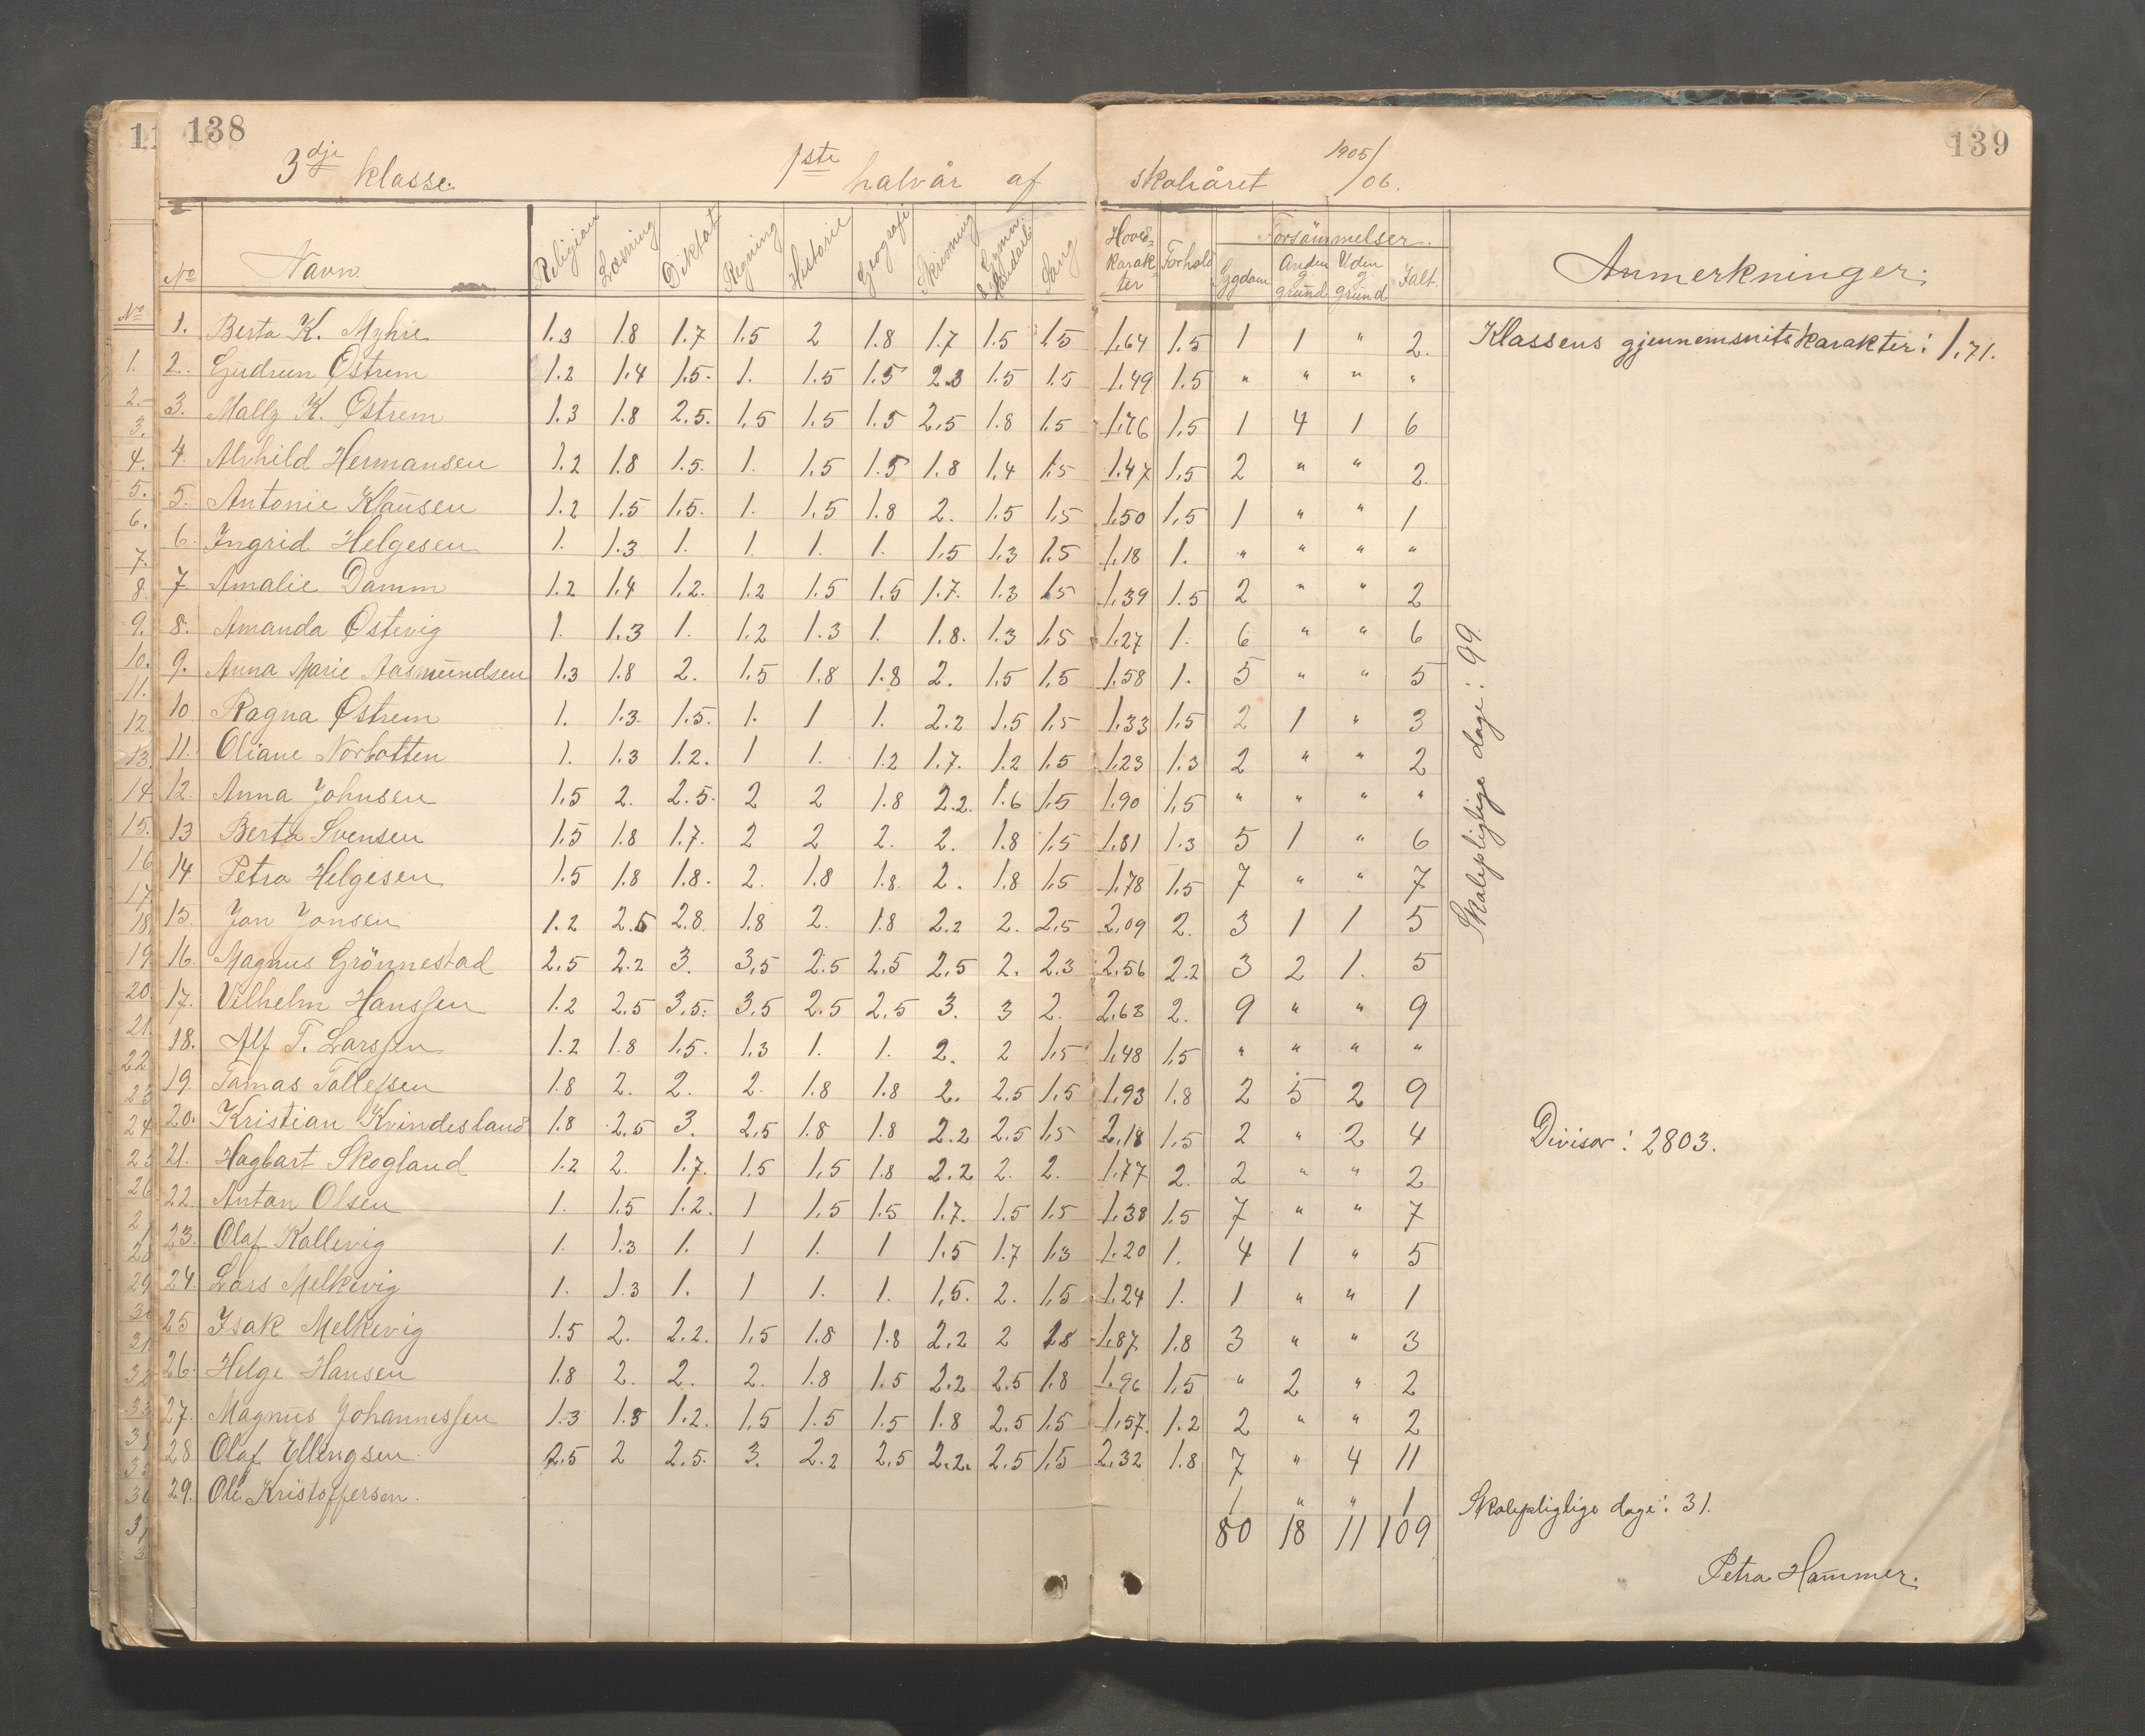 138 139
3dje klasse. 1ste halvår af skoleåret 1905/06.
No Navn. Religion Læsning Diktat Regning Historie Geografi Skrivning Gymn. & Håndarb. Sang Hoved-karak-ter Forhold Forsömmelser. Sygdom Anden grund Uden grund Ialt. Anmerkninger.
1. Berta K. Myhre 1.3 1.8 1.7 1.5 2 1.8 1.7 1.5 1.5 1.64 1.5 1 1 " 2. Klassens gjennemsnitskarakter: 1.71.
2. Gudrun Østrem 1.2 1.4 1.5. 1. 1.5 1.5 2.3 1.5 1.5 1.49 1.5 " " " "
3. Mally K. Østrem 1.3 1.8 2.5. 1.5 1.5 1.5 2.5 1.8 1.5 1.76 1.5 1 4 1 6
4. Alvhild Hermansen 1.2 1.8 1.5. 1. 1.5 1.5 1.8 1.4 1.5 1.47 1.5 2 " " 2.
5. Antonie Klausen 1.2 1.5 1.5. 1. 1.5 1.8 2. 1.5 1.5 1.50 1.5 1 " " 1
6. Ingrid Helgesen 1. 1.3 1. 1. 1. 1. 1.5 1.3 1.5 1.18 1. " " " "
7 Amalie Damm 1.2 1.4 1.2. 1.2 1.5 1.5 1.7. 1.3 1.5 1.39 1.5 2 " " 2
8. Amanda Østevig 1. 1.3 1. 1.2 1.3 1. 1.8. 1.3 1.5 1.27 1. 6 " " 6
9. Anna Marie Aasmundsen 1.3 1.8 2. 1.5 1.8 1.8 2. 1.5 1.5 1.58 1. 5 " " 5
10 Ragna Østrem 1. 1.3. 1.5. 1. 1 1. 2.2 1.5 1.5 1.33 1.5 2 1 " 3
11. Oliane Norbotten 1. 1.3 1.2. 1 1. 1.2 1.7. 1.2 1.5 1.23 1.3 2 " " 2
12. Anna Johnsen 1.5 2. 2.5. 2 2 1.8 2.2. 1.6 1.5 1.90 1.5 " " " "
13 Berta Svensen 1.5 1.8 1.7. 2 2 2. 2. 1.8 1.5 1.81 1.3 5 1 " 6
14 Petra Helgesen 1.5 1.8 1.8. 2. 1.8 1.8. 2. 1.8 1.5 1.78 1.5 7 " " 7
15. Jon Jonsen 1.2 2.5 2.8. 1.8 2. 1.8 2.2 2. 2.5 2.09 2. 3 1 1 5
16. Magnus Grönnestad 2.5 2.2 3. 3.5 2.5 2.5 2.5 2. 2.3 2.56 2.2 3 2 1. 5
17. Vilhelm Hanssen 1.2 2.5 3.5. 3.5 2.5 2.5 3. 3 2. 2.63 2. 9 " " 9
18. Alf T. Larssen 1.2 1.8 1.5. 1.3 1. 1. 2. 2 1.5 1.48 1.5 " " " "
19. Tomas Tollefsen 1.8 2. 2. 2. 1.8 1.8 2. 2.5 1.5 1.93 1.8 2 5 2 9
20. Kristian Kvindesland 1.8 2.5 3. 2.5 1.8 1.8 2.2 2.5 1.5 2.18 1.5 2 " 2 4
21. Hagbart Skogland 1.2 2. 1.7. 1.5 1.5 1.8 2.2 2. 2. 1.77 2. 2 " " 2
22. Anton Olsen 1. 1.5 1.2. 1 1.5 1.5 1.7. 1.5 1.5 1.38 1.5 7 " " 7
23. Olaf Kallevig 1. 1.3 1. 1 1. 1 1.5 1.7 1.3 1.20 1. 4 1 " 5
24. Lars Melkevig 1. 1.3 1. 1 1. 1. 1.5. 2. 1.5 1.24 1. 1 " " 1
25 Isak Melkevig 1.5 2. 2.2. 1.5 1.8 1.8 2.2 2 1.8 1.87 1.8 3 " " 3
26. Helge Hansen 1.8 2. 2. 2. 1.8 1.5 2.2 2.5 1.8 1.96 1.5 " 2 " 2
27. Magnus Johannessen 1.3 1.8 1.2. 1.5 1.5 1.5 1.8 2.5 1.5 1.57. 1.2 2 " " 2
28 Olaf Ellingsen 2.5 2 2.5. 3. 2.2 2.5 2.2. 2.5 1.5 2.32 1.8 7 " 4 11
29. Ole Kristoffersen. 1 " " 1 Skolepligtige dage: 31.
80 18 11 109
Skolepligtige dage: 99.
Divisor: 2803.
Petra Hammer.